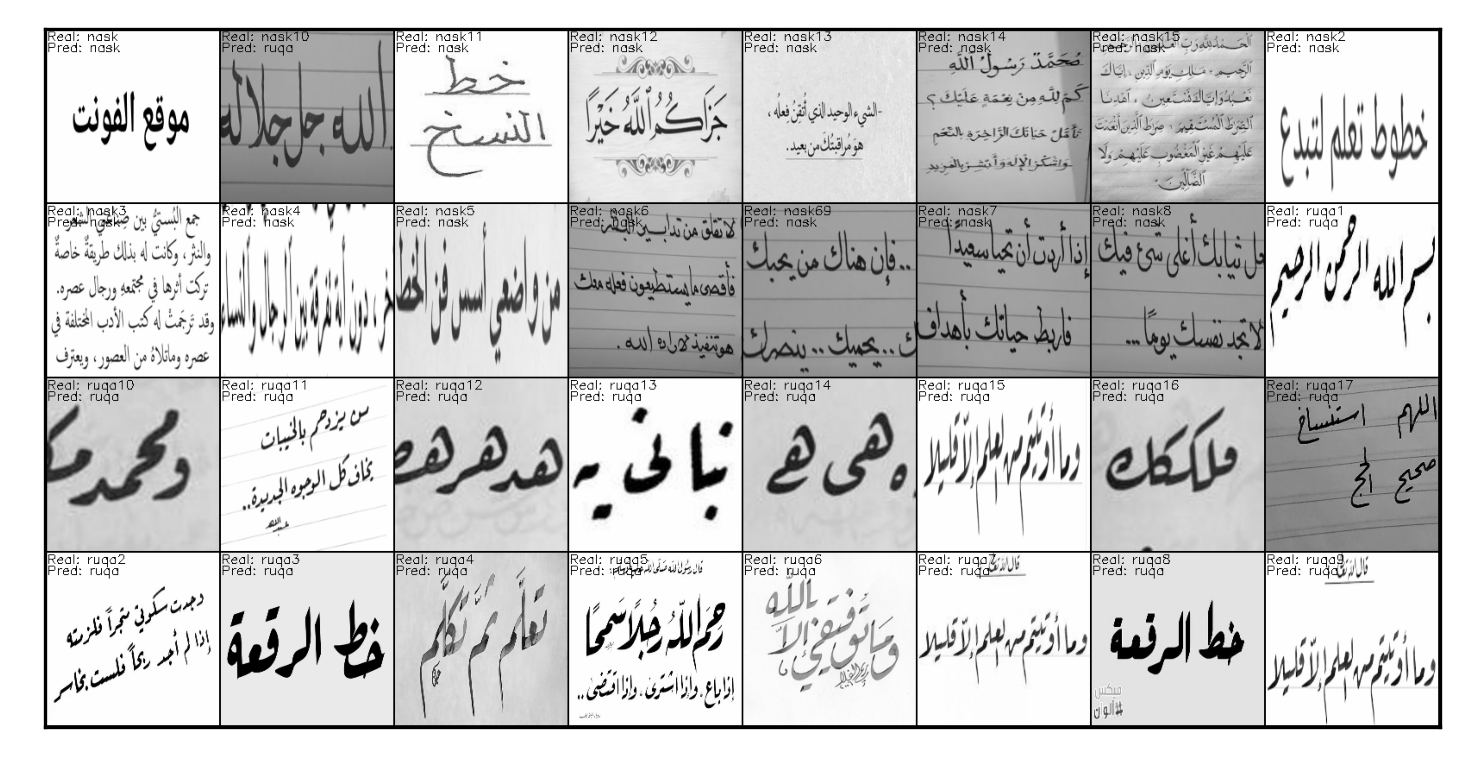 Real: nask
Pred: nask
موقع الفونت
Real: nask10
Pred: ruqa
الله جل جلاله
Real: nask11
Pred: nask
خط
النسخ
Real: nask12
Pred: nask
جَزَاكُمُ اللَّهُ خَيْرًا
Real: nask13
Pred: nask
-الشيء الوحيد الذي أُتقِنُ فِعلُه ،
هوَ مُراقبتُكَ من بعيد.
Real: nask14
Pred: nask
مُحَمَّدٌ رَسُولُ اللَّهِ
كَمْ لِلَّهِ مِنْ نِعْمَةٍ عَلَيْكَ ؟
تَأَمَّلْ حَيَاتَكَ الزَّاخِرَةِ بِالنِّعَمِ
وَاشْكُرِ الإِلٰهَ وَأَبْشِرْ بِالمَزِيدِ
Real: nask15
Pred: nask
الْحَمْدُ لِلَّهِ رَبِّ
الرَّحِيمِ . مَلِكِ يَوْمِ الدِّينِ . إِيَّاكَ
نَعْبُدُ وَإِيَّاكَ نَسْتَعِينُ . اهْدِنَا
الصِّرَاطَ الْمُسْتَقِيمَ . صِرَاطَ الَّذِينَ أَنْعَمْتَ
عَلَيْهِمْ غَيْرِ الْمَغْضُوبِ عَلَيْهِمْ وَلَا
الضَّالِّينَ .
Real: nask2
Pred: nask
خطوط تعلم لتبدع
Real: nask3
Pred: nask
جمع البُستيُّ بين
والنثر ، وكانت له بذلك طريقةٌ خاصةٌ
تركت أثرها في مجتمعهِ ورجال عصره.
وقد تَرجَمتْ له كتب الأدب المختلفة في
عصره وماتلاهُ من العصور ، ويعترف
Real: nask4
Pred: nask
خر ، دون أية تفرقة بين الرجال والنساء
Real: nask5
Pred: nask
من واضعي أسس فن الخط
Real: nask6
Pred: nask
لا تقلق من تدابير البشر
فأقصى ما يستطيعون فعله معك
هو تنفيذ لإرادة الله .
Real: nask69
Pred: nask
..فإن هناك من يحبك
ك ..يحميك .. ينصرك
Real: nask7
Pred: nask
إذا أردت أن تحيا سعيداً
فاربط حياتك بأهداف
Real: nask8
Pred: nask
قل ثيابك أغلى شئ فيك
لا تجد نفسك يومًا...
Real: ruqa1
Pred: ruqa
بسم الله الرحمن الرحيم
Real: ruqa10
Pred: ruqa
ومحمد مك
Real: ruqa11
Pred: ruqa
من يزدحم بالخيبات
يخاف كل الوجوه الجديدة..
Real: ruqa12
Pred: ruqa
هد هر هص
Real: ruqa13
Pred: ruqa
نبا نى يه
Real: ruqa14
Pred: ruqa
ه هى هے
Real: ruqa15
Pred: ruqa
وما أُوتيتم من العلم إلاّ قليلا
Real: ruqa16
Pred: ruqa
Real: ruqa17
Pred: ruqa
اللهم استنساخ
صحيح الحج
Real: ruqa2
Pred: ruqa
وجدت سكوتي متجراً فلزمته
إذا لم أجد ربحاً فلست بخاسر
Real: ruqa3
Pred: ruqa
خط الرقعة
Real: ruqa4
Pred: ruqa
تَعَلَّم ثُمَّ تَكَلَّم
Real: ruqa5
Pred: ruqa
قال رسول الله صلى الله عليه وسلم
رحمَ اللّهُ رَجُلاً سَمحًا
إذا باع ، وإذا اشترى ، وإذا اقتضى ..
Real: ruqa6
Pred: ruqa
وَمَا تَوفِيقِي إِلاَّ بِاللَّهِ
Real: ruqa7
Pred: ruqa
قال الله تعالى
وما أُوتيتم من العلم إلاّ قليلا
Real: ruqa8
Pred: ruqa
خط الرقعة
ميكس
#ألوان
Real: ruqa9
Pred: ruqa
قال الله تعالى
وما أُوتيتم من العلم إلاّ قليلا